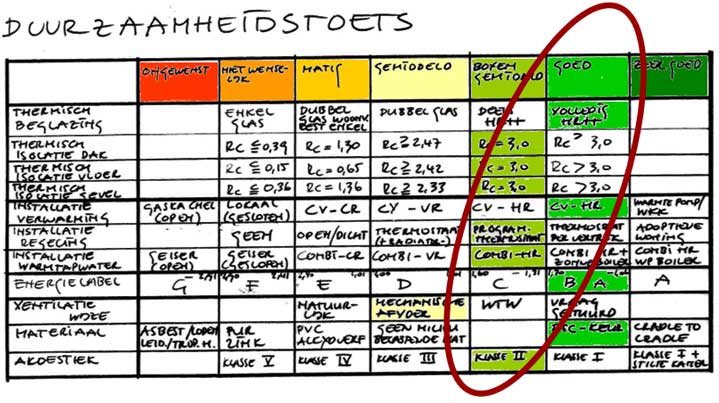 DUURZAAMHEIDSTOETS
ONGEWENST NIET WENSE- LIJK MATIG GEMIDDELD BOVEN GEMIDDELD GOED ZEER GOED
THERMISCH BEGLAZING ENKEL GLAS DUBBEL GLAS WOONV. BEST ENKEL DUBBEL GLAS DEELS HR++ VOLLEDIG HR++
THERMISCH ISOLATIE DAK Rc ≦ 0,39 Rc = 1,30 Rc ≧ 2,47 Rc = 3,0 Rc > 3,0
THERMISCH ISOLATIE VLOER Rc ≦ 0,15 Rc = 0,65 Rc ≧ 2,42 Rc = 3,0 Rc > 3,0
THERMISCH ISOLATIE GEVEL Rc ≦ 0,36 Rc = 1,36 Rc ≧ 2,33 Rc = 3,0 Rc > 3,0
INSTALLATIE VERWARMING GASKACHEL (OPEN) LOKAAL (GESLOTEN) CV-CR CV-VR CV-HR CV-HR WARMTEPOMP/ WKK
INSTALLATIE REGELING GEEN OPEN/DICHT THERMOSTAAT (+RADIATOR-) PROGRAM- THERMOSTAAT THERMOSTAAT PER VERTREK ADAPTIEVE WONING
INSTALLATIE WARMTAPWATER GEISER (OPEN) GEISER (GESLOTEN) COMBI-CR COMBI-VR COMBI-HR COMBI HR+ ZONNEBOILER COMBI HR WP BOILER
ENERGIELABEL G F E D C B A A
VENTILATIE WIJZE NATUUR- LIJK MECHANISCHE AFVOER WTW VRAAG GESTUURD
MATERIAAL ASBEST/LOOD LEID./TROP. H. PUR ZINK PVC ALKYDVERF GEEN MILIEU BELASTENDE MAT FSC-KEUR CRADLE TO CRADLE
AKOESTIEK KLASSE V KLASSE IV KLASSE III KLASSE II KLASSE I KLASSE I + STILTE KAMER